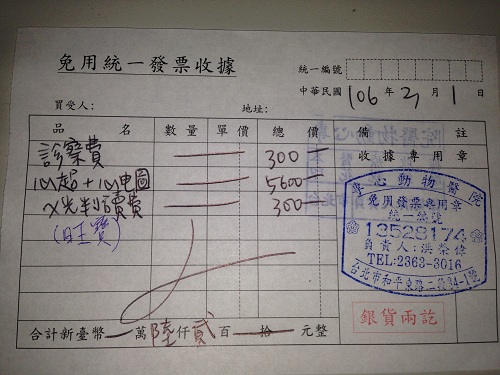 免用統一發票收據
統一編號
中華民國 106 年 2 月 1 日
買受人： 地址：
品名 數量 單價 總價 備註
收據專用章
診察費 300
心超+心电圖 5600
X光判讀費 300
(旺寶)
專心動物醫院
免用發票專用章
統一編號
13528174
負責人:洪榮偉
TEL:2363-3016
台北市和平東路二段34-1號
銀貨兩訖
合計新臺幣 萬 陸 仟 貳 百 拾 元整